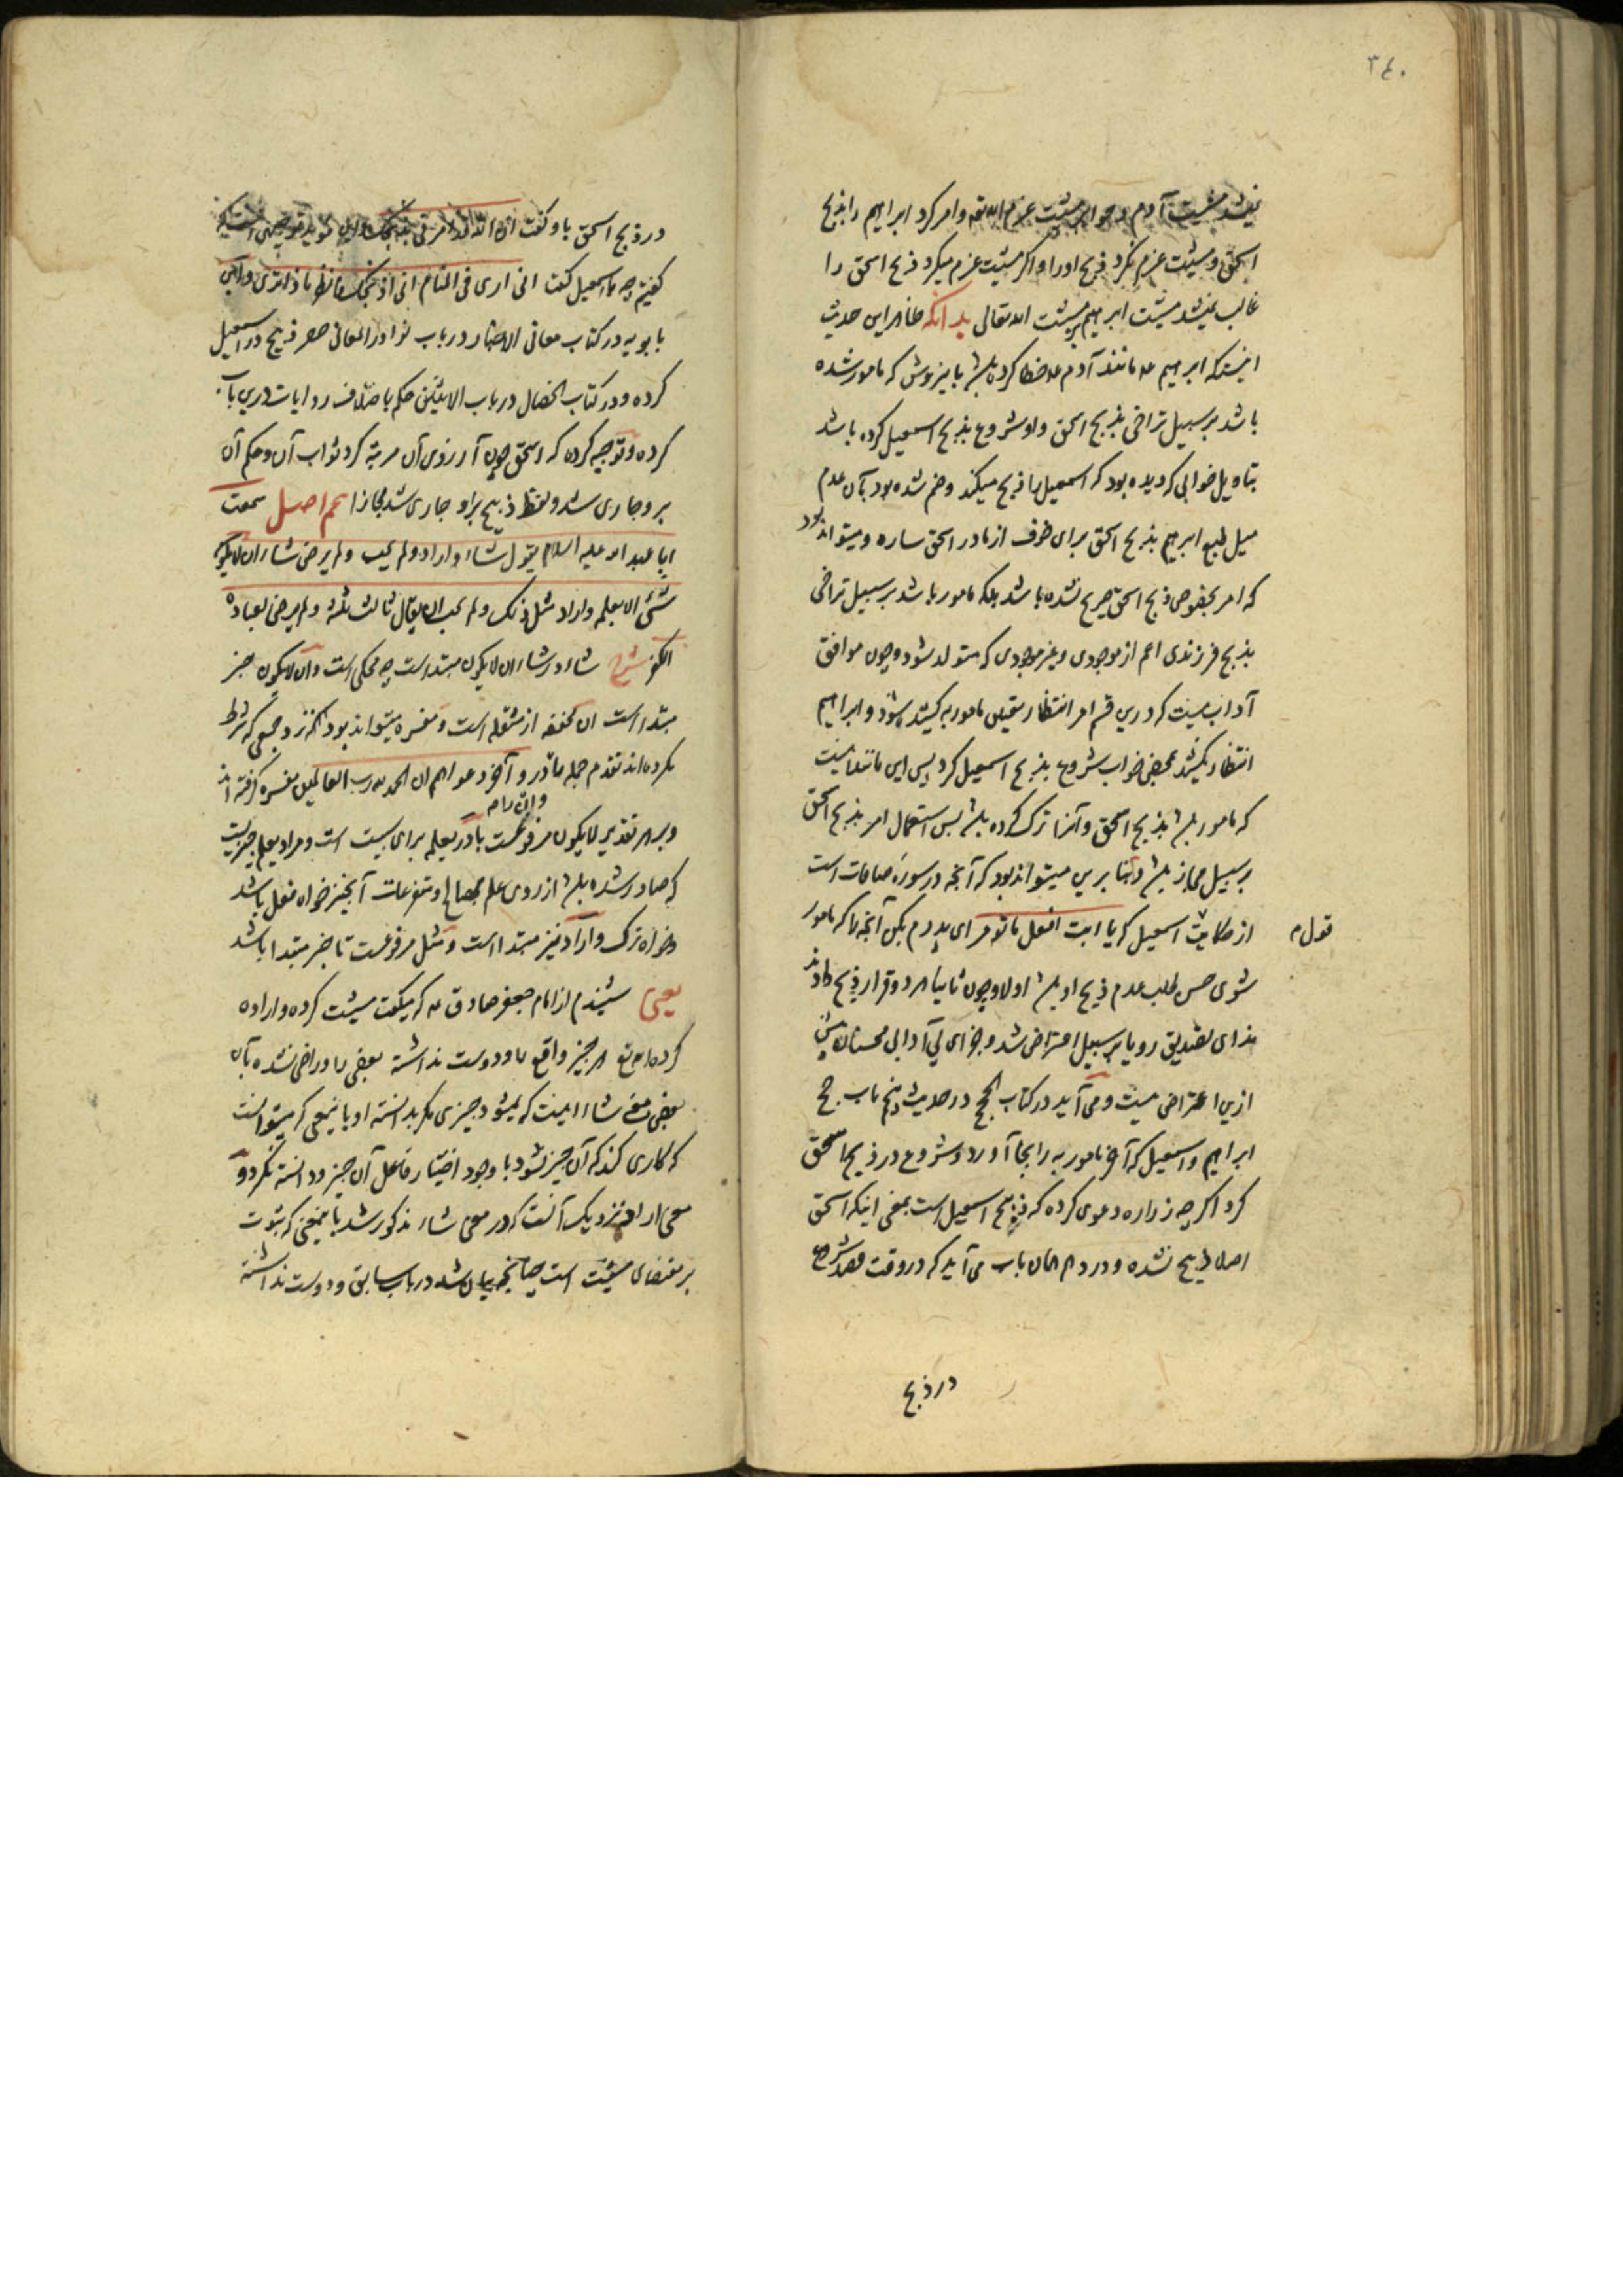 ۳۴۰
نمیشد مشیت آدم و حوا بر مشیت عزم الله تع و امر کرد ابراهیم را بذبح
اسحق و مشیت عزم نکرد ذبح او را و اگر مشیت عزم میکرد ذبح اسحق را
غالب نمیشد مشیت ابراهیم بر مشیت الله تعالی بدانکه ظاهر این حدیث
اینستکه ابراهیم ع مانند آدم ع خطا کرده باشد باینروش که مامور شده
باشد بر سبیل تراخی بذبح اسحق و او شروع بذبح اسمعیل کرده باشد
بتاویل خوابی که دیده بود که اسمعیل را ذبح میکند و ضم شده بود بآن عدم
میل طبع ابراهیم بذبح اسحق برای خوف از مادر اسحق ساره و میتواند بود
که امر بخصوص ذبح اسحق صریح نشده باشد بلکه مامور باشد بر سبیل تراخی
بذبح فرزندی اعم از موجودی و غیر موجودی که متولد شود و چون موافق
آداب نیست که درین قسم امر انتظار تعیین مامور به کشیده نشود و ابراهیم
انتظار نکشید بمحض خواب شروع بذبح اسمعیل کرد پس این مانند اینست
که مامور باشد بذبح اسحق و آنرا ترک کرده باشد پس استعمال امر بذبح اسحق
بر سبیل مجاز باشد و بنا برین میتواند بود که آنچه در سوره صافات است
از حکایت اسمعیل که یا ابت افعل ما تؤمر ای پدرم بکن آنچه را که مامور
قوله
شوی حسن طلب عدم ذبح او باشد اولا و چون ثانیا هر دو قرار ذبح دادند
ندای تصدیق رویا بر سبیل اعتراض شد و جزای بی آدابی محسنان بیش
ازین اعتراض نیست و می آید در کتاب الحج در حدیث پنجم باب حج
ابراهیم و اسمعیل که آخر مامور به را بجا آورد و شروع در ذبح اسحق
کرد اگر چه زراره دعوی کرده که ذبیح اسمعیل است بمعنی اینکه اسحق
اصلا ذبیح نشده و در دهم همان باب می آید که در وقت قصد شروع
در ذبح
در ذبح اسحق باو گفت ان الله قد امرنی بذبحک و این
گفتیم چه با اسمعیل گفت انی اری فی المنام انی اذبحک فانظر ماذا تری و ابن
بابویه در کتاب معانی الاخبار در باب نوادر المعانی حصر ذبیح در اسمعیل
کرده و در کتاب الخصال در باب الاثنین حکم باختلاف روایات درین باب
کرده و توجیه کرده که اسحق چون آرزوی آن مرتبه کرد ثواب آن و حکم آن
برو جاری شد و لفظ ذبیح برو جاری شد مجازا هم اصل سمعت
ابا عبد الله علیه السلام یقول شاء و اراد و لم یحب و لم یرض شاء ان لا یکون
شیء الا بعلمه و اراد مثل ذلک و لم یحب ان یقال ثالث ثلثة و لم یرض لعباده
الکفر شرح شاء در شاء ان لا یکون مبتداست چه محکی است و ان لا یکون خبر
مبتدا است ان مخففه از مثقله است و مفسره میتواند بود نزد جمعی که شرط
نکرده اند تقدم جمله ما در و آخر دعواهم ان الحمد لله رب العالمین مفسره گرفته اند
و بهر تقدیر لا یکون مرفوعست با در بعلمه برای سببیت است و مراد بعلم چیزیست
که صادر شده باشد از روی علم بمصالح و متفرعات آنچیز خواه فعل باشد
و خواه ترک و اراد نیز مبتدا است و مثل مرفوعست تا خبر مبتدا باشد
یعنی شنیدم از امام جعفر صادق ع که میگفت مشیت کرده و اراده
کرده الله تع هر چیز واقع را و دوست نداشته بعضی را و راضی نشده بآن
بعضی معنی شاء اینست که نمیشود چیزی مگر بدانسته او باینمعنی که میتوانست
که کاری کند که آن چیز نشود با وجود اختیار فاعل آن چیز و دانسته نکرد و
معنی اراد نزدیک آنست که در معنی شاء مذکور شد باینمعنی که بثبوت
بر مقتضای مشیت است چنانچه بیان شد در باب سابق و دوست نداشته